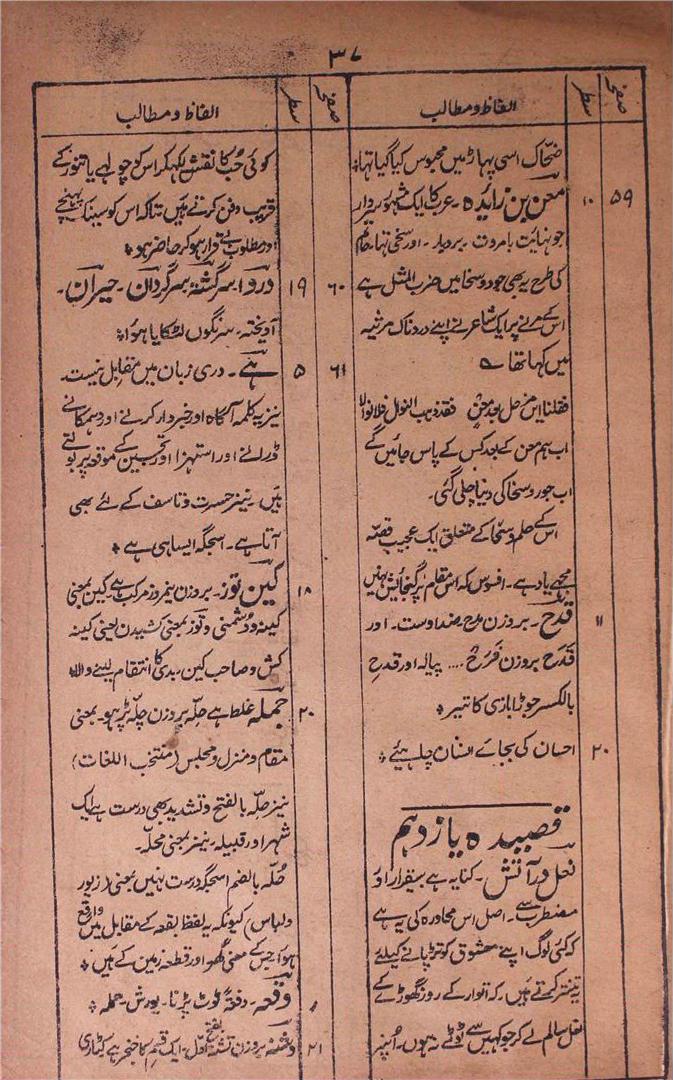 ۳۷
صفحہ سطر الفاظ و مطالب
ضحاک اسی پہاڑ میں محبوس کیا گیا تھا؞
۵۹ ۱۰ معن بن زایدہ۔ عرب کا ایک مشہور سردار
جو نہایت بامروت۔ بردبار۔ اور سخی تھا، حاتم
کی طرح یہ بھی جود و سخا میں ضرب المثل ہے
اس کے مرنے پر ایک شاعر نے اپنے دردناک مرثیہ
میں کہا تھا ؎
فقلنا این نرحل بعد معنٍ فقد ذہب النوال فلا نوالا
اب ہم معن کے بعد کس کے پاس جائیں گے
اب جود و سخا کی دنیا چلی گئی۔
اس کے حلم و سخا کے متعلق ایک عجیب قصہ
مجھے یاد ہے۔ افسوس کہ اس مقام پر گنجائش نہیں
۱۱ قدح۔ بروزن مدح ضد اوست۔ اور
قدَح بروزن فَرَح .... پیالہ اور قدحِ
بالکسر جوٴا بازی کا تیر؞
۲۰ احسان کی بجائے انسان چاہیئے؞
قصیدہ یازدہم
نعل در آتش۔ کنایہ ہے بیقرار اور
مضطر سے۔ اصل اس محاورہ کی یہ ہے
کہ کئی لوگ اپنے معشوق کو تڑپانے کیلئے
تنتر کرتے ہیں۔ کہ اتوار کے روز گھوڑے کے
نعل سالم لے کر جو کہیں سے ٹوٹے نہ ہوں۔ اُنپر
صفحہ سطر الفاظ و مطالب
کوئی حُب کا نقش لکھکر اس کو چولہے یا تنور کے
قریب دفن کرتے ہیں تاکہ اس کو سینک پہنچے
اور مطلوب بے قرار ہو کر حاضر ہو؞
۶۰ ۱۹ دروا۔ سرگشتہ۔ سرگردان۔ حیران۔
آویختہ۔ سرنگوں لٹکایا ہوا؞
۶۱ ۵ ہے۔ دری زبان میں مقابل نیست۔
نیز یہ کلمہ آگاہ اور خبردار کرنے اور دھمکانے
ڈرانے اور استہزا اور تحسین کے موقعہ پر بولتے
ہیں۔ نیز حسرت و تاسف کے لئے بھی
آتا ہے۔ اسجگہ ایسا ہی ہے؞
۱۸ کین توز۔ بروزن نیمروز مرکب ہے۔ کین بمعنی
کینہ و دشمنی و توز بمعنی کشیدن یعنی کینہ
کش و صاحب کین۔ بدی کا انتقام لینے والا
۲۰ جملہ غلط ہے حِلّہ بروزن چلّہ پڑہو۔ بمعنی
مقام و منزل و مجلس (منتخب اللغات)
نیز حلّہ بالفتح و تشدید بھی درست ہے ایک
شہر اور قبیلہ۔ نیز بمعنی محلّہ۔
حُلّہ بالضم اسجگہ درست نہیں بمعنی (زیور
و لباس) کیونکہ یہ لفظ بقعہ کے مقابل میں واقع
ہوا، جس کے معنی گھر اور قطعہ زمین کے ہیں؞
وقعہ۔ دفعۃً ٹوٹ پڑنا۔ یورش۔ حملہ؞
۲۱ دشنہ بروزن تشنہ بفتح اول۔ ایک قسم کا خنجر ہے کٹاری